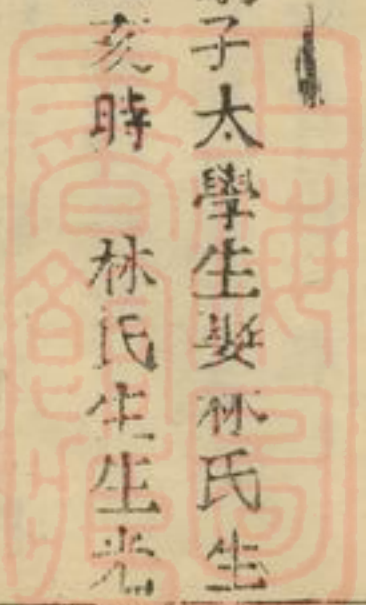 子太學生娶林氏生
亥時　林氏生生光